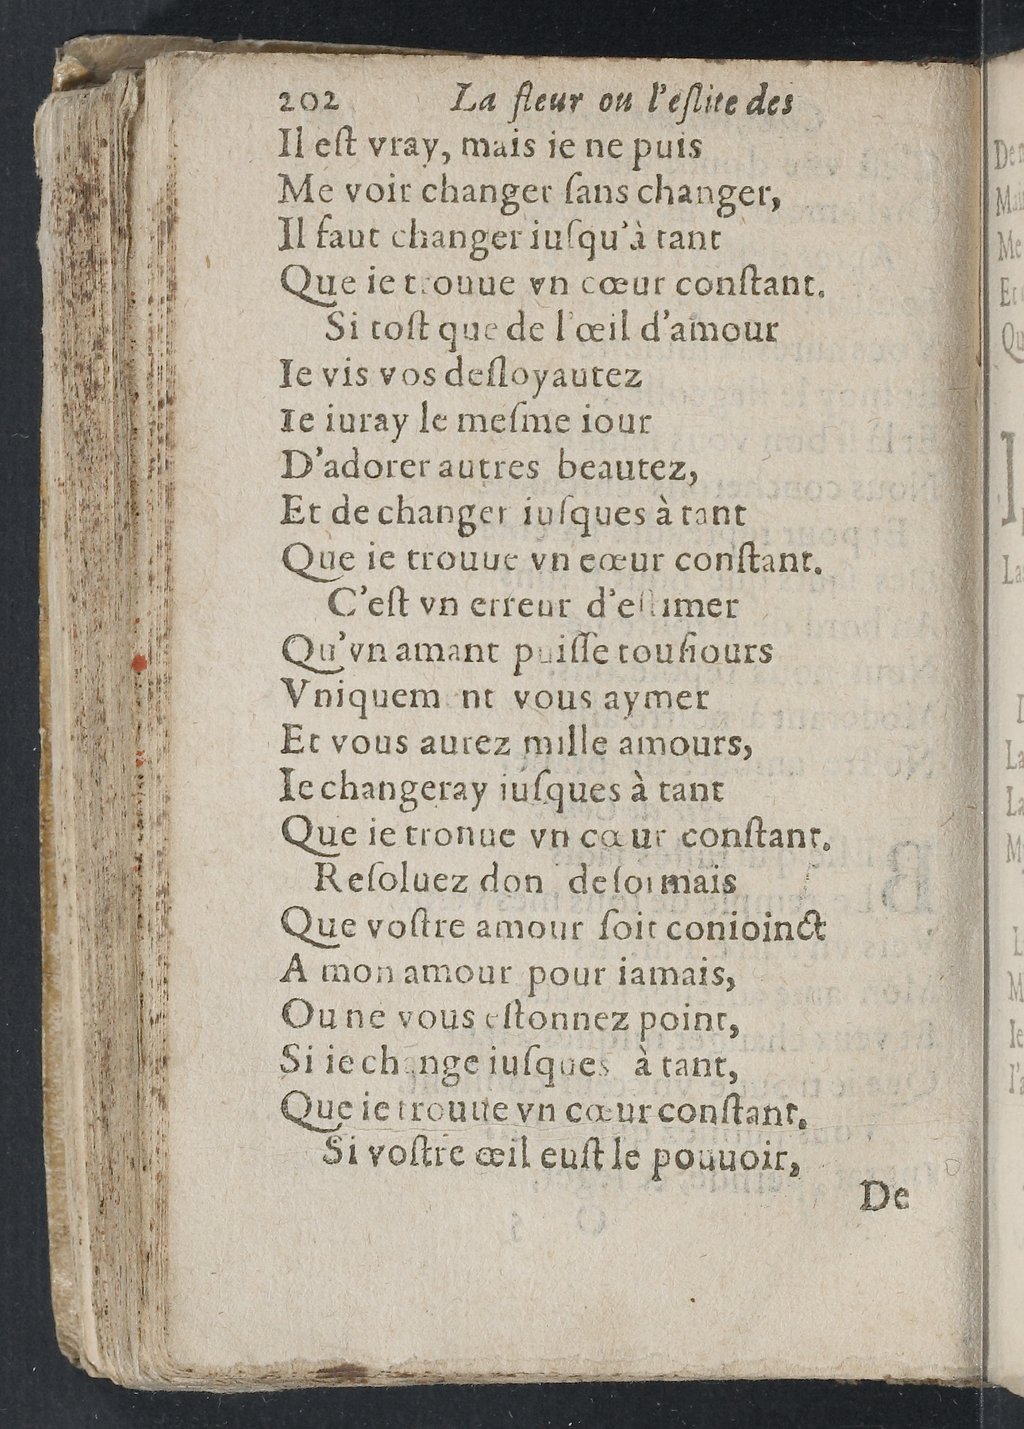 202 La fleur ou l'eſlite des
Il eſt vray, mais ie ne puis
Me voir changer ſans changer,
Il faut changer iuſqu'à tant
Que ie trouue vn cœur conſtant.
Si toſt que de l'œil d'amour
Ie vis vos deſloyautez
Ie iuray le meſme iour
D'adorer autres beautez,
Et de changer iuſques à tant
Que ie trouue vn cœur conſtant.
C'eſt vn erreur d'eſtimer
Qu'vn amant puiſſe touſiours
Vniquement vous aymer
Et vous aurez mille amours,
Ie changeray iuſques à tant
Que ie tronue vn cœur conſtant.
Reſoluez don deſormais
Que voſtre amour ſoit conioinct
A mon amour pour iamais,
Ou ne vous eſtonnez point,
Si ie change iuſques à tant,
Que ie trouue vn cœur conſtant.
Si voſtre œil euſt le pouuoir,
De